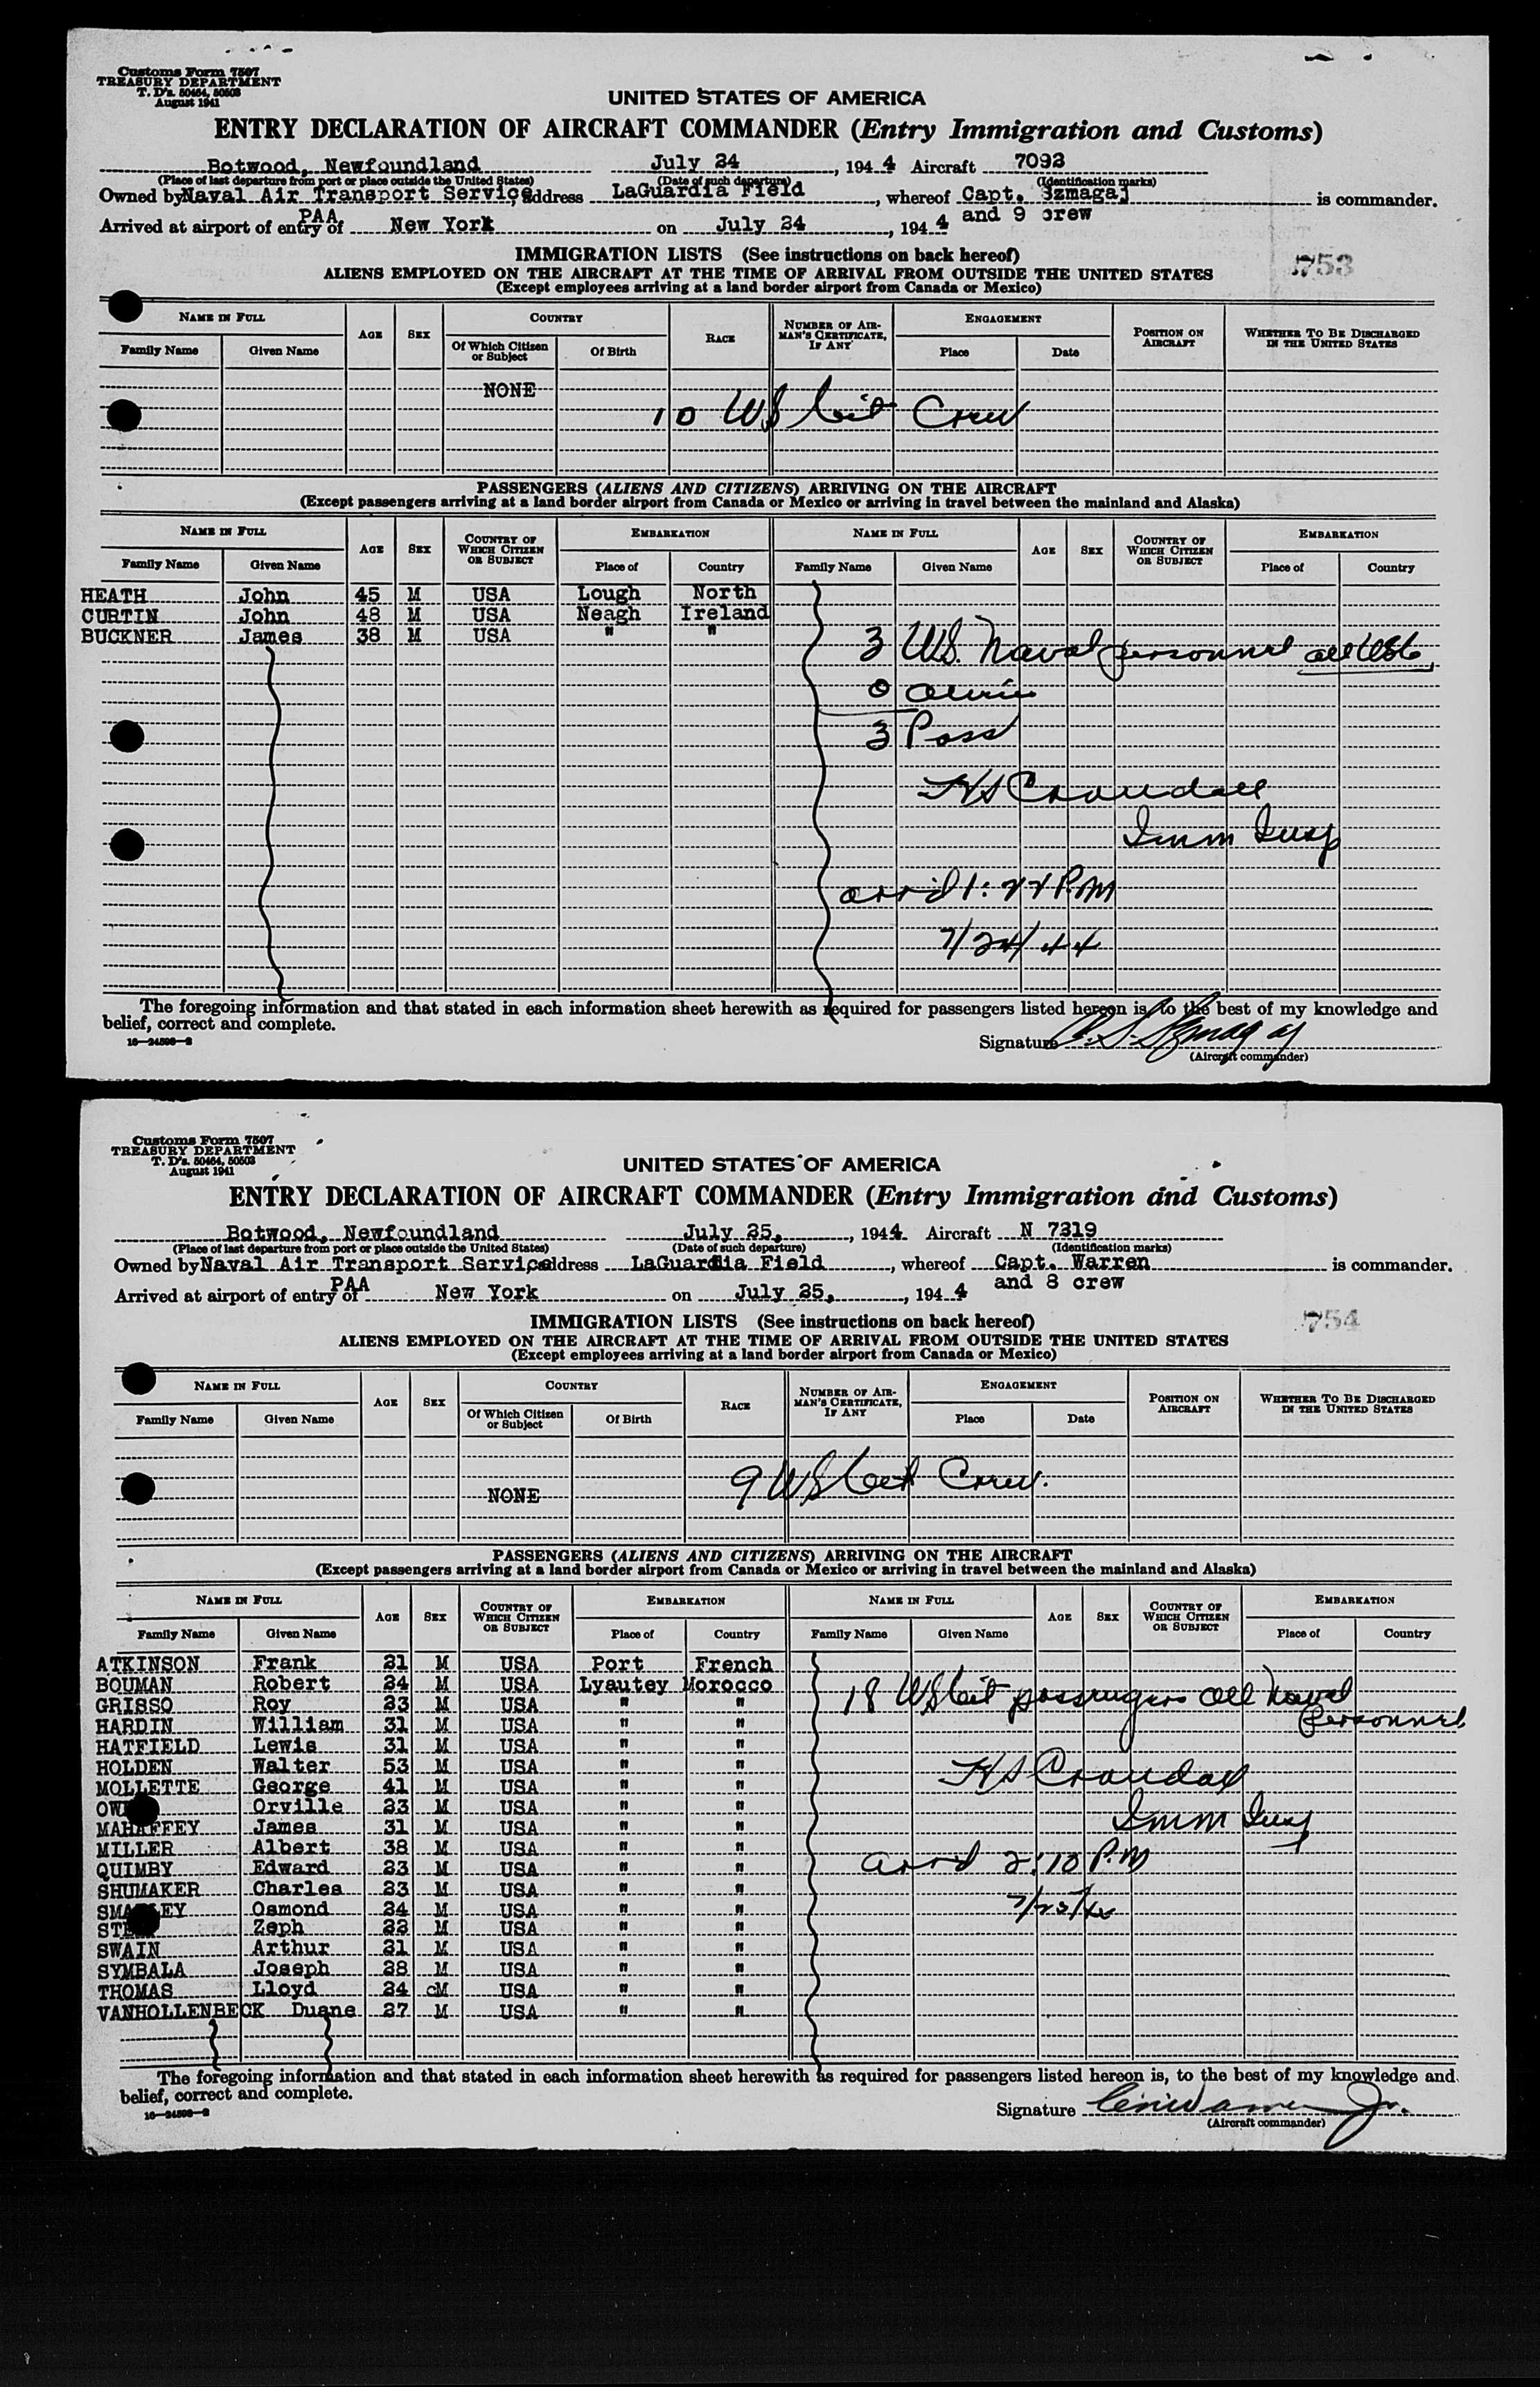 Customs Form 7507
TREASURY DEPARTMENT
T. D's. 50464, 50503
August 1941
UNITED STATES OF AMERICA
ENTRY DECLARATION OF AIRCRAFT COMMANDER (Entry Immigration and Customs)
Botwood, Newfoundland July 24, 1944 Aircraft 7092
(Place of last departure from port or place outside the United States) (Date of such departure) (Identification marks)
Owned by Naval Air Transport Service, address LaGuardia Field, whereof Capt. Szmagaj is commander.
PAA and 9 crew
Arrived at airport of entry of New York on July 24, 1944
IMMIGRATION LISTS (See instructions on back hereof) 753
ALIENS EMPLOYED ON THE AIRCRAFT AT THE TIME OF ARRIVAL FROM OUTSIDE THE UNITED STATES
(Except employees arriving at a land border airport from Canada or Mexico)
NAME IN FULL AGE SEX COUNTRY RACE NUMBER OF AIRMAN'S CERTIFICATE, IF ANY ENGAGEMENT POSITION ON AIRCRAFT WHETHER TO BE DISCHARGED IN THE UNITED STATES
Family Name Given Name Of Which Citizen or Subject Of Birth Place Date
NONE
10 US Cit Crew
PASSENGERS (ALIENS AND CITIZENS) ARRIVING ON THE AIRCRAFT
(Except passengers arriving at a land border airport from Canada or Mexico or arriving in travel between the mainland and Alaska)
NAME IN FULL AGE SEX COUNTRY OF WHICH CITIZEN OR SUBJECT EMBARKATION NAME IN FULL AGE SEX COUNTRY OF WHICH CITIZEN OR SUBJECT EMBARKATION
Family Name Given Name Place of Country Family Name Given Name Place of Country
HEATH John 45 M USA Lough North
CURTIN John 48 M USA Neagh Ireland
BUCKNER James 38 M USA " "
3 U.S. Naval personnel all USC
0 aliens
3 Pass
HS Crandall
Imm Insp
arrid 1:22 P.M
7/24/44
The foregoing information and that stated in each information sheet herewith as required for passengers listed hereon is, to the best of my knowledge and
belief, correct and complete.
16—24598—2
Signature A. S. Szmagaj
(Aircraft commander)
Customs Form 7507
TREASURY DEPARTMENT
T. D's. 50464, 50503
August 1941
UNITED STATES OF AMERICA
ENTRY DECLARATION OF AIRCRAFT COMMANDER (Entry Immigration and Customs)
Botwood, Newfoundland July 25, 1944 Aircraft N 7219
(Place of last departure from port or place outside the United States) (Date of such departure) (Identification marks)
Owned by Naval Air Transport Service, address LaGuardia Field, whereof Capt. Warren is commander.
PAA and 8 crew
Arrived at airport of entry of New York on July 25, 1944
IMMIGRATION LISTS (See instructions on back hereof) 754
ALIENS EMPLOYED ON THE AIRCRAFT AT THE TIME OF ARRIVAL FROM OUTSIDE THE UNITED STATES
(Except employees arriving at a land border airport from Canada or Mexico)
NAME IN FULL AGE SEX COUNTRY RACE NUMBER OF AIRMAN'S CERTIFICATE, IF ANY ENGAGEMENT POSITION ON AIRCRAFT WHETHER TO BE DISCHARGED IN THE UNITED STATES
Family Name Given Name Of Which Citizen or Subject Of Birth Place Date
9 US Cit Crew.
NONE
PASSENGERS (ALIENS AND CITIZENS) ARRIVING ON THE AIRCRAFT
(Except passengers arriving at a land border airport from Canada or Mexico or arriving in travel between the mainland and Alaska)
NAME IN FULL AGE SEX COUNTRY OF WHICH CITIZEN OR SUBJECT EMBARKATION NAME IN FULL AGE SEX COUNTRY OF WHICH CITIZEN OR SUBJECT EMBARKATION
Family Name Given Name Place of Country Family Name Given Name Place of Country
ATKINSON Frank 21 M USA Port French
BOUMAN Robert 24 M USA Lyautey Morocco
GRISSO Roy 23 M USA " "
HARDIN William 31 M USA " "
HATFIELD Lewis 31 M USA " "
HOLDEN Walter 53 M USA " "
MOLLETTE George 41 M USA " "
Orville 23 M USA " "
MAHAFFEY James 31 M USA " "
MILLER Albert 38 M USA " "
QUIMBY Edward 23 M USA " "
SHUMAKER Charles 23 M USA " "
Osmond 24 M USA " "
Zeph 22 M USA " "
SWAIN Arthur 21 M USA " "
SYMBALA Joseph 28 M USA " "
THOMAS Lloyd 24 M USA " "
VANHOLLENBECK Duane 27 M USA " "
18 US Cit passengers all Naval
Personnel
HS Crandall
Imm Insp
arrid 2:10 P.M
7/25/44
The foregoing information and that stated in each information sheet herewith as required for passengers listed hereon is, to the best of my knowledge and
belief, correct and complete.
16—24598—2
Signature
(Aircraft commander)